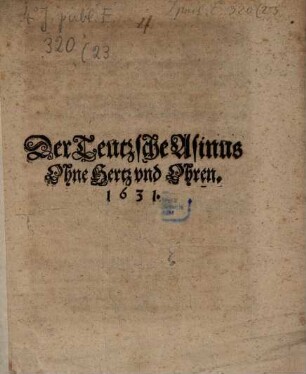 4 J. publ. E
320/(23
4
Der Teutzsche Asinus
Ohne Hertz vnd Ohren.
1631.